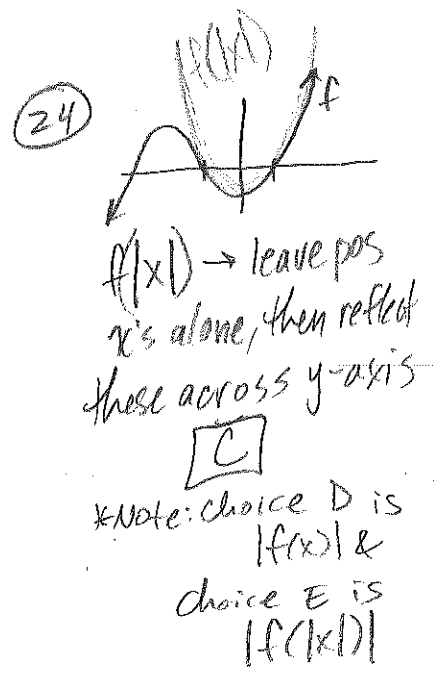 f(|x|)
f
24
f(|x|) → leave pos
x's alone, then reflect
these across y-axis
C
*Note: choice D is
|f(x)| &
choice E is
|f(|x|)|